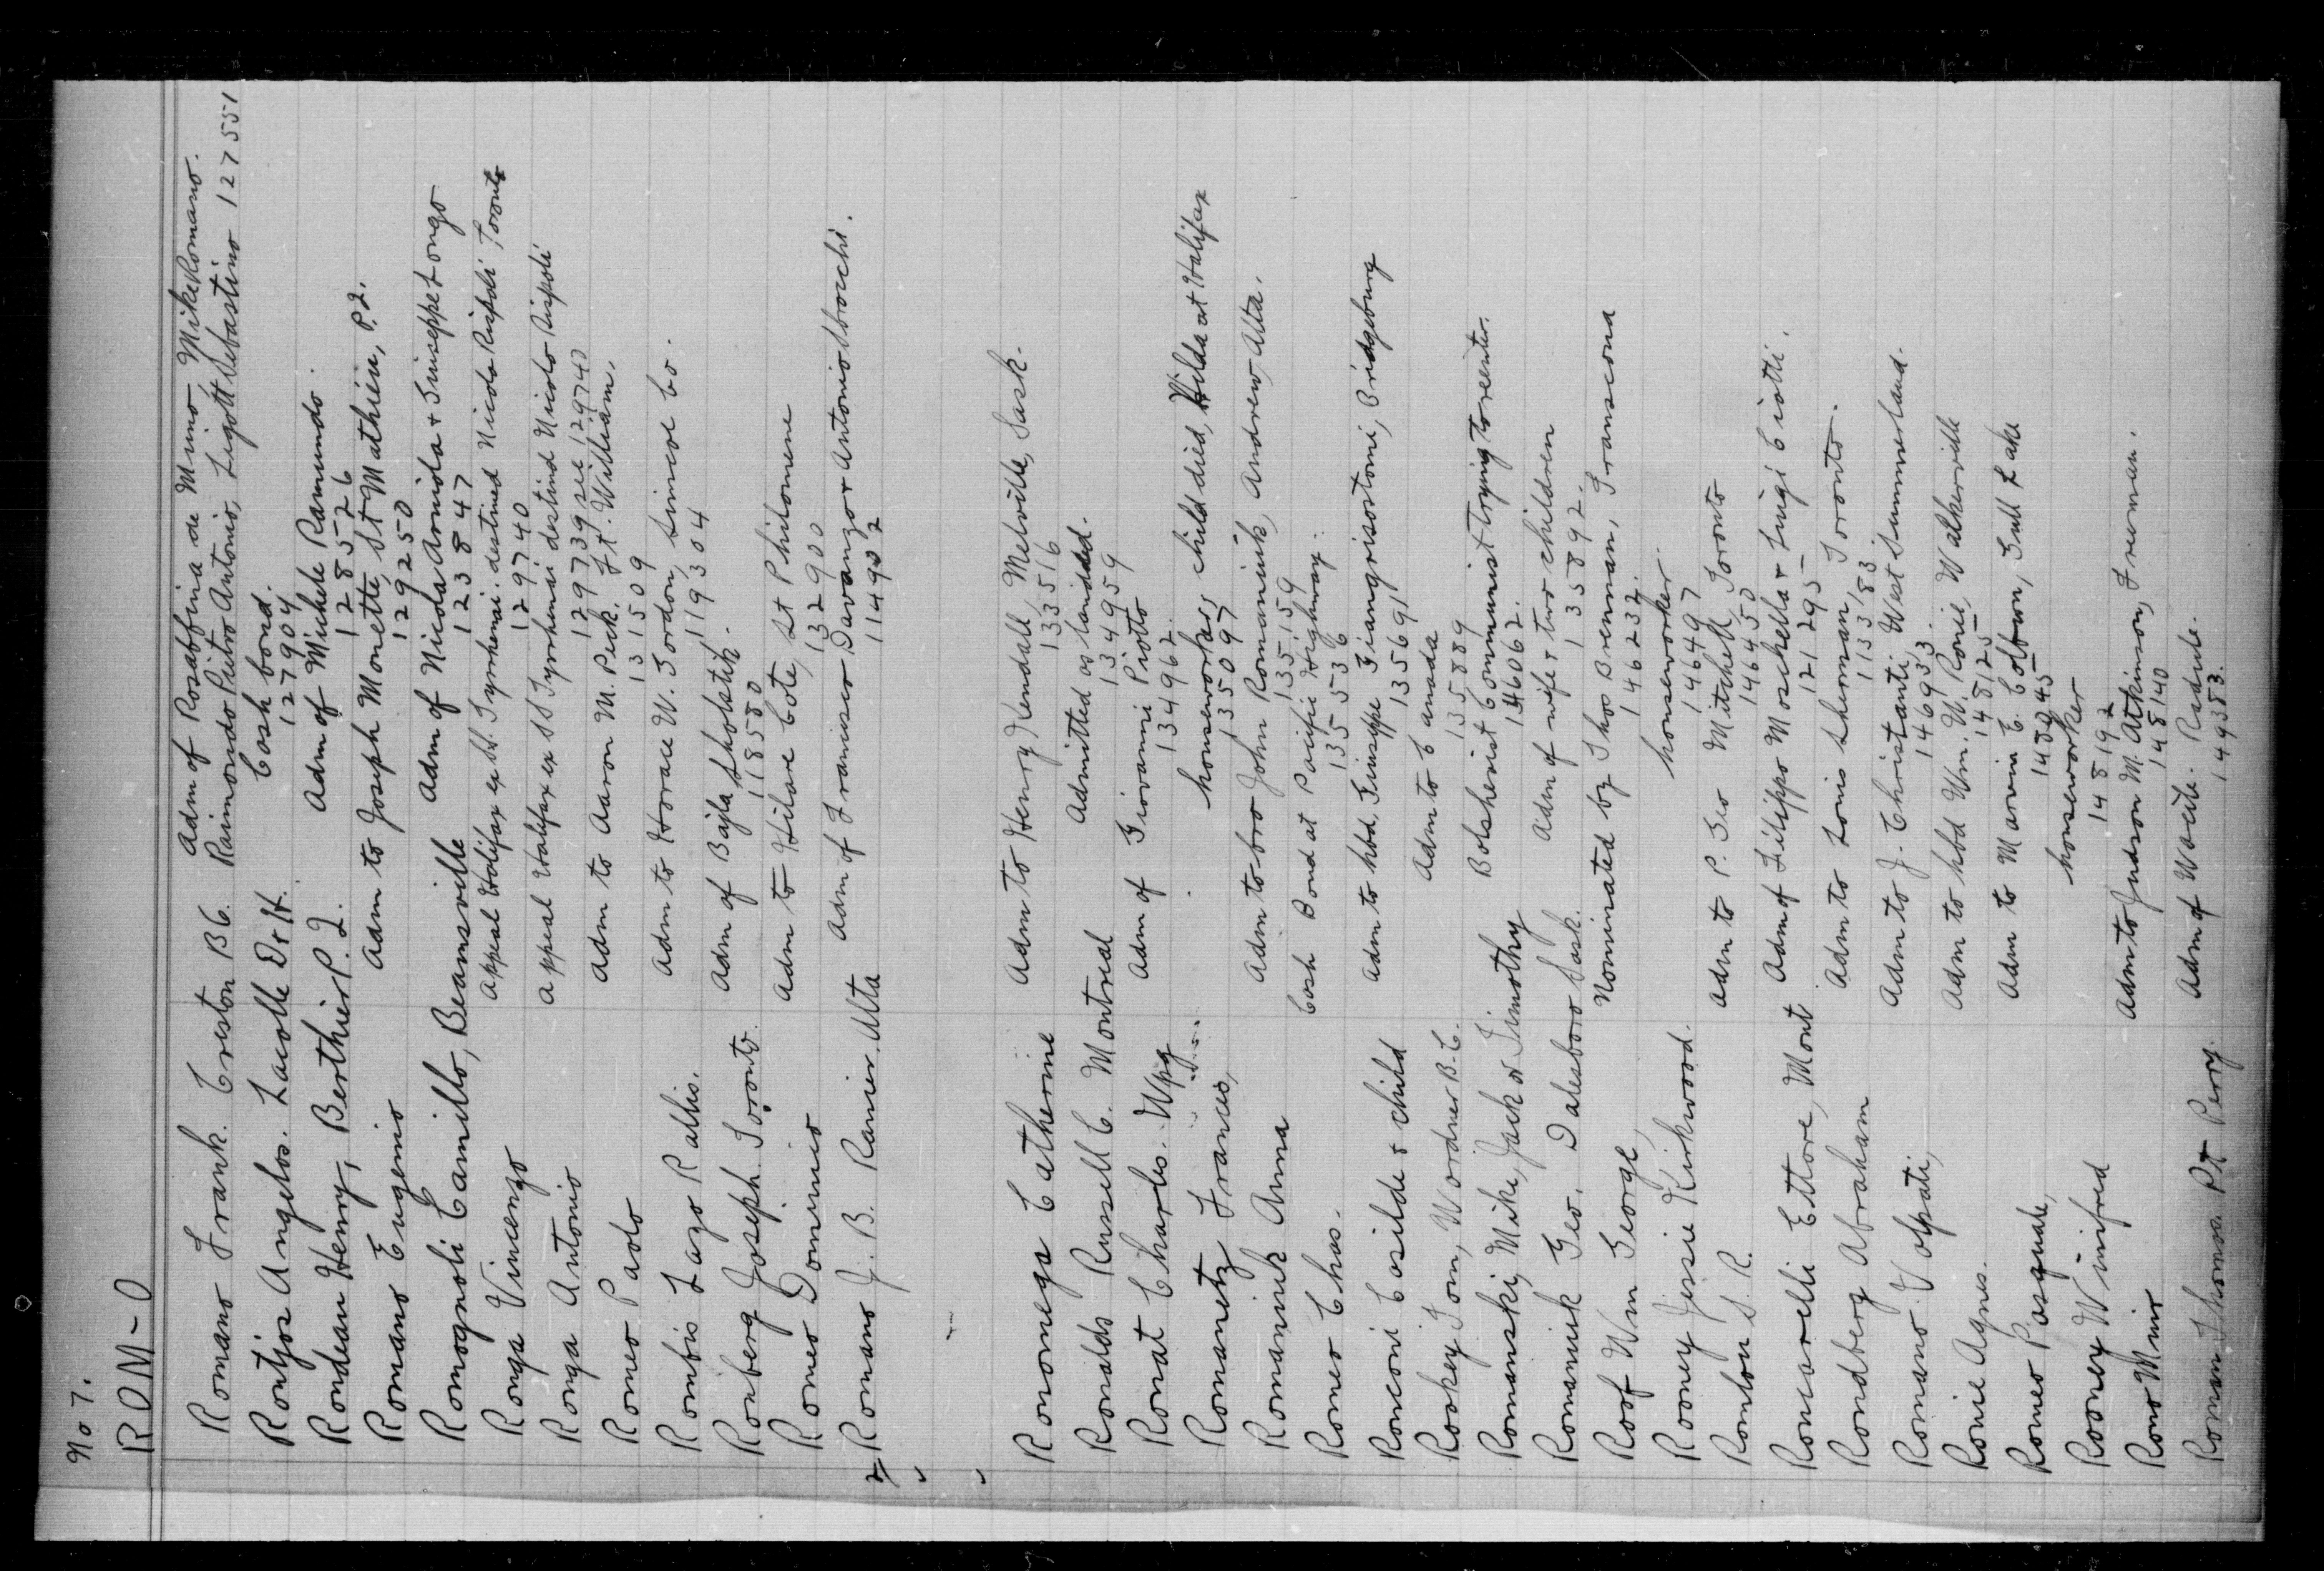 No 7.
ROM-O
Romano Frank. Creston B C. Adm of Rosaffina de Mino, Mike Romano.
Raimondo Pietro Antonio, Ligott Sebastino 127551
Rontjos Angelos. Lacolle D & H. Cash bond.
127904
Rondeau Henry, Berthier P. Q. Adm of Michele Ramundo.
128526
Romano Eugenio Adm to Joseph Monette, St Mathieu, P.Q.
129250
Romognoli Camillo, Beamsville Adm of Nicola Aoniola & Giuseppe Longo
123847
Ronga Vincenzo Appeal Halifax ex SS. Tyrrhenai. destined Nicola Rispoli Toronto
129740
Ronga Antonio Appeal Halifax ex SS Tyrrhenai destind Nicolo Rispoli
129739 see 129740
Romeo Paolo Adm to Aaron M. Peck. Ft. William.
131509
Rombis Lazo Rallis. Adm to Horace W. Gordon, Simcoe Co.
119304
Ronberg Joseph. Toronto. Adm of Bajla Sholostik.
118580
Romeo Dominico Adm to Hilare Cote, St Philomene
132900
Romano J. B. Ranier. Alta Adm of Francisco Davanzo & Antonio Sbrocchi.
114902
Ronomega Catherine Adm to Henry Kendall, Melville, Sask.
133516
Ronalds Russell C. Montreal Admitted as landed.
134959
Ronat Charles. Wpg Adm of Giovanni Piotto
134962
Romanetz Frances, houseworker, child died, Hilda at Halifax
135097
Romaniuk Anna Adm to bro John Romaniuk, Andrew, Alta.
135159
Romeo Chas. Cash Bond at Pacific Highway.
135536
Ronconi Casilde & child Adm to hbd, Giuseppe Giangrisostomi, Bridgeburg
135691
Rookey Tom, Wordner B.C. Adm to Canada
135889
Romanski, Mike, Jack or Timothy Bolshevist Communist trying to reenter.
146062.
Romaniuk Geo. Dalesboro Sask. Adm of wife & two children
135892.
Roof Wm George, Nominated by Thos Brennan, Transcona
146232.
Rooney Jessie Kirkwood. houseworker.
146497
Romlon S. R. Adm to P. Geo Mitchell, Toronto
146450
Roncarelli Ettore, Mont Adm of Filippo Moschella & Luigi Ciotti.
121295
Rondberg Abraham Adm to Louis Sherman, Toronto.
113383
Romano Volpati, Adm to J. Christanti, West Summerland.
146933.
Ronie Agnes. Adm to hbd Wm. W. Ronie, Walkerville
148125
Romeo Pasquale, Adm to Marvin C. Coltson, Gull Lake
Rooney Winifred houseworker
148192
Rono Mino Adm to Judson M. Atkinson, Freeman.
148140
Roman Thomas Pt Perry. Adm of Wasile Radute.
149383.